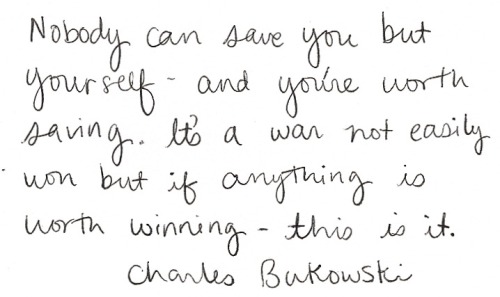 Nobody can save you but
yourself - and you're worth
saving. It's a war not easily
won but if anything is
worth winning - this is it.
Charles Bukowski